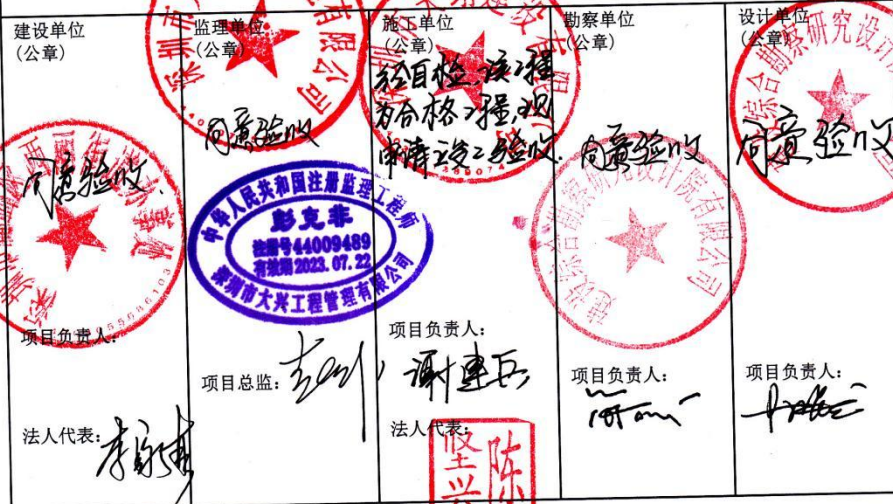 建设单位
(公章)
同意验收.
项目负责人:
法人代表:
监理单位
(公章)
有限公司
深圳市
同意验收
中华人民共和国注册监理工程师
彭克非
注册号44009489
有效期2023.07.22
深圳市大兴工程管理有限公司
项目总监:
施工单位
(公章)
经自检,该工程
为合格工程,现
申请竣工验收.
项目负责人:
谢建兵
法人代表:
陈
坚兴
勘察单位
(公章)
同意验收
建设综合勘察研究设计院有限公司
项目负责人:
设计单位
(公章)
综合勘察研究设计
同意验收
项目负责人: